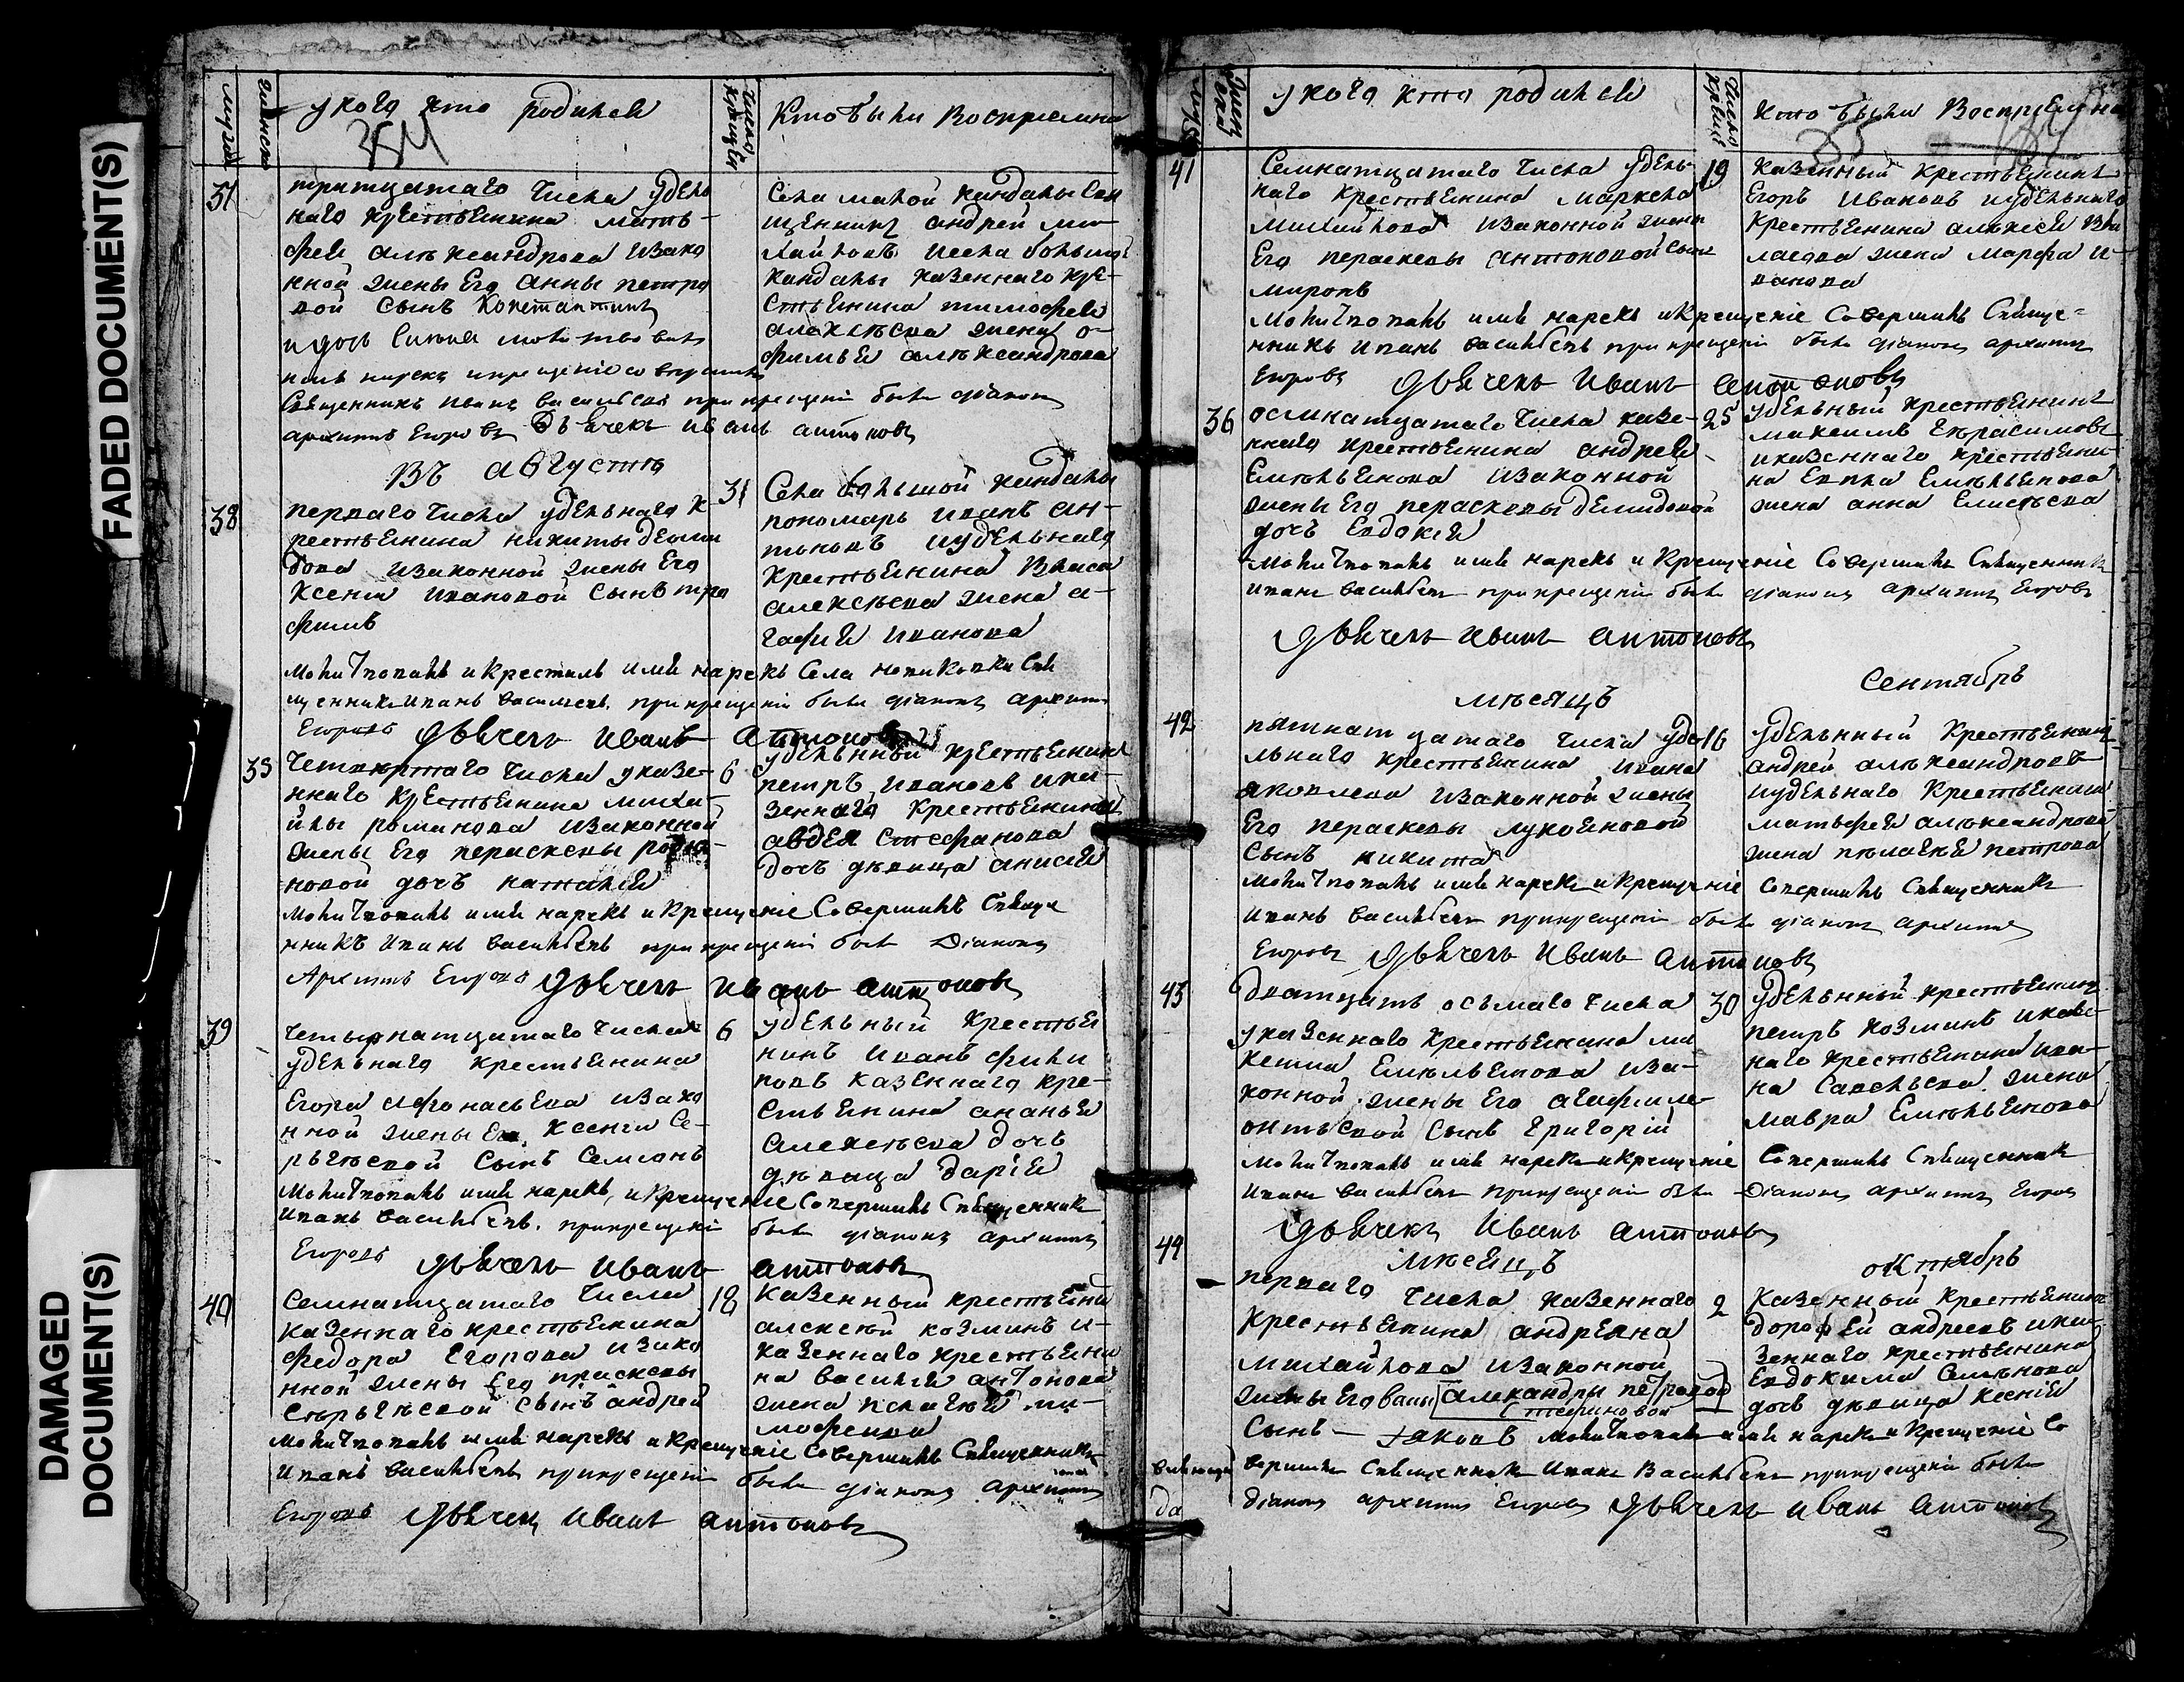 FADED DOCUMENT(S)
DAMAGED
DOCUMENT(S)
у кого кто родился
Число
Кто были Восприемни
37
тритцатаго Числа удель
наго крестьянина Матъ-
фея александрова изако
нной жены Его Анны петро
вой сынъ Константинъ
Священникъ Иванъ Васильевъ при крещеніи былъ діаконъ
архипъ Егоровъ Дьячекъ иванъ антоновъ
Села малой кандалы Свя
щенникъ андрей ми
хайловъ исела большой
кандалы казеннаго кре-
стьянина тимофея
алексѣева жена о-
фимья александрова
Въ августѣ
38
перваго Числа удельнаго к
рестьянина никиты деми
дова изаконной жены Его
Ксеніи Ивановой Сынъ тро
фимъ
31
Села большой кандалы
пономарь иванъ ан-
тоновъ иудельнаго
Крестьянина Власа
алексѣева жена а-
гафия иванова
Молитвовалъ и крестилъ имя нарекъ Села
щенникъ иванъ васильевъ при крещеніи былъ діаконъ архипъ
Егоровъ дьячекъ иванъ антоновъ
35
Четвертаго Числа у казе-
ннаго Крестьянина михай
йлы романова изаконной
жены Его параскевы
новой дочъ наталия
6
удельный крестьянинъ
петръ Ивановъ ика-
зеннаго Крестьянина
авдея Стефанова
дочъ девица анисия
Молитвовалъ имя нарекъ и Крещеніе Совершилъ Свяще
нникъ иванъ васильевъ при крещеніи былъ Діаконъ
Архипъ Егоровъ дьячекъ иванъ антоновъ
39
четырнатцатаго Числа
удельнаго крестьянина
Егора Афонасьева изако
нной жены Его Ксеніи Се-
ргѣевой Сынъ Семіонъ
6
удельный Крестьян
нинъ иванъ фили
повъ казеннаго кре-
стьянина ананья
алексѣева дочъ
дѣвица дарія
Молитвовалъ имя нарекъ, и Крещеніе Совершилъ Священникъ
иванъ васильевъ. при крещеніи былъ діаконъ архипъ
Егоровъ дьячекъ иванъ антоновъ
40
Семнатцатаго Числа
казеннаго крестьянина
федора Егорова изако
нной жены Его праскевы
Сергѣевой Сынъ андрей
18
казенный крестьяни
алексѣй козминъ и-
казеннаго крестьяни
на василия антонова
жена пелагея ти-
мофеева
Молитвовалъ имя нарекъ и Крещеніе Совершилъ Священникъ
иванъ васильевъ при крещеніи былъ діаконъ архипъ
Егоровъ дьячекъ иванъ антоновъ
у кого кто родился
Число
Кто были Восприемни
35
41
Семнатцатаго Числа удель-
наго Крестьянина Маркела
Михайлова изаконной жены
Его параскевы антоновой сынъ
миронъ
19
казенный Крестьянинъ
Егоръ Ивановъ иудельнаго
Крестьянина алексея
жена марфа и-
ванова
Молитвовалъ имя нарекъ и Крещеніе Совершилъ Свяще=
нникъ иванъ васильевъ при крещеніи былъ діаконъ архипъ
Егоровъ дьячекъ иванъ антоновъ
36
осмнатцатаго Числа казе-
ннаго крестьянина андрея
Емельянова изаконной
жены Его параскевы демидовой
дочъ Евдокия
25
удельный крестьянинъ
максимъ Герасимовъ
иказеннаго крестьяни-
на Емельянова
жена анна Елисѣева
Молитвовалъ имя нарекъ и Крещеніе Совершилъ Священникъ
иванъ васильевъ при крещеніи былъ діаконъ архипъ Егоровъ
дьячекъ иванъ антоновъ
мѣсяцъ Сентябрь
42
пятнатцатаго Числа уде
льнаго крестьянина ивана
яковлева изаконной жены
Его параскевы лукояновой
Сынъ никита
16
удельный Крестьянинъ
андрей александровъ
иудельнаго Крестьянина
матьфея александрова
жена пелагея петрова
Молитвовалъ имя нарекъ и Крещеніе Совершилъ Священникъ
иванъ васильевъ при крещеніи былъ діаконъ архипъ
Егоровъ дьячекъ иванъ антоновъ
43
двадцать осьмаго числа
у казеннаго Крестьянина ми
Емельянова иза-
конной жены Его агафи ле-
онтьевой Сынъ Григорій
30
удельный крестьянинъ
петръ козминъ иказе-
наго крестьянина ива-
на Савельева жена
мавра Емельянова
Молитвовалъ имя нарекъ и Крещеніе Совершилъ Священникъ
иванъ васильевъ при крещеніи былъ Діаконъ архипъ Егоровъ
дьячекъ иванъ антоновъ
мѣсяцъ октябрь
44
перваго Числа казеннаго
Крестьянина андреяна
михайлова изаконной
жены Его александры петровой
Сынъ яковъ Молитвовалъ имя нарекъ и Крещеніе Со
2
Казенный Крестьянинъ
дорофей андреевъ ика
зеннаго крестьянина
Евдокима Семенова
дочъ дѣвица ксения
вершилъ Священникъ иванъ Васильевъ при крещеніи былъ
діаконъ архипъ Егоровъ дьячекъ иванъ антоновъ